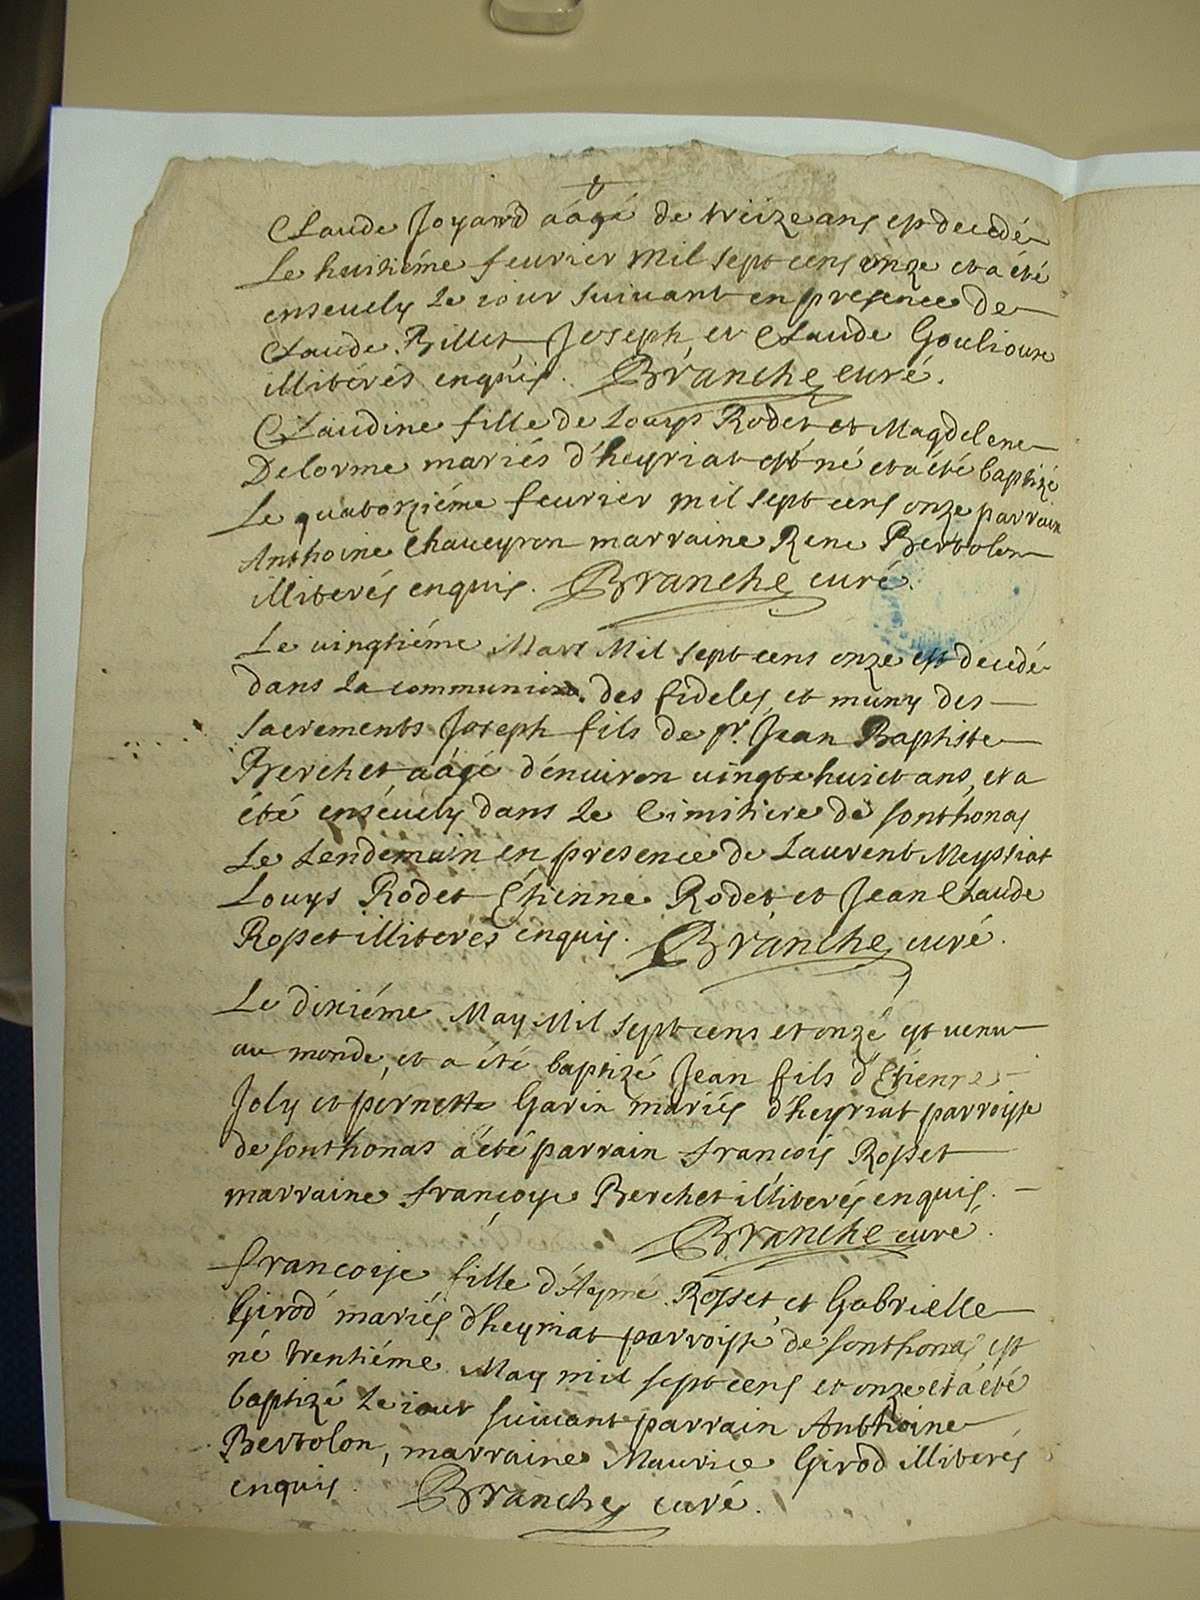 Claude Joyard aágé de treize ans est decedé
Le huitiéme feurier mil sept cens onze et a été
enseuely le iour suiuant en presence de
Claude Billet Joseph et Claude Goulioux
illiterés enquis. Branche curé.
Claudine fille de Louys Rodet et Magdelene
Delorme mariés d'heyriat est né et a été baptizé
Le quatorziéme feurier mil sept cens onze parrain
Anthoine Chaueyron marraine Rene Bertolon
illiterés enquis. Branche curé.
Le vingtiéme Mars Mil sept cens onze est decedé
dans la communion des fideles et muny des
sacrements Joseph fils de Sr. Jean Baptiste
Berchet aágé d'enuiron vingt huict ans, et a
été enséuely dans le Cimitiere de sonthonas
Le Lendemain en presence de Laurent Meyssiat
Louys Rodet Étienne Rodet et Jean Claude
Rosset illiterés enquis. Branche curé.
Le dixiéme May Mil sept cens et onze est venu
au monde, et a été baptizé Jean fils d'Etienne
Joly et pernette Garin mariés d'heyriat parroisse
de sonthonas a été parrain francois Rosset
marraine françoise Berchet illiterés enquis.
Branche curé.
françoise fille d'Aymé Rosset et Gabrielle
Girod mariés d'heyriat parroisse de sonthonas est
né trentiéme May mil sept cens et onze et a été
baptizé le iour suiuant parrain Anthoine
Bertolon, marraine Maurice Girod illiterés
enquis. Branche curé.